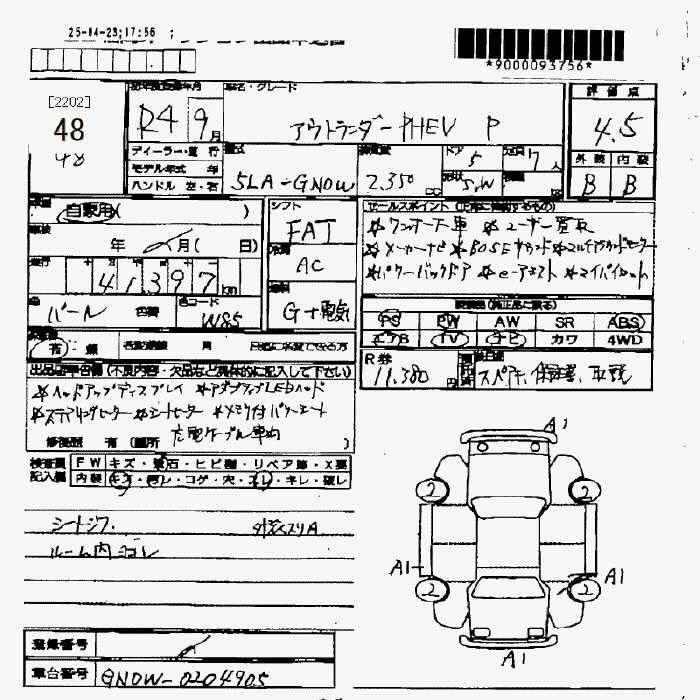 25-04-23;17:56
*9000093756*
[2202]
48
48
車名・グレード
R4 9月
アウトランダーPHEV P
評価点
4.5
ディーラー・並行
モデル年式 年
ハンドル 左・右
型式
5LA-GN0W
2.350 cc
ドア 5
形状 S.W
定員 7人
外装 内装
B B
自家用( )
年 月( 日)
走行
41,397 km
シフト
FAT
冷房
AC
燃料
G+電気
セールスポイント
☆ワンオーナー車 ☆ユーザー買取
☆メーカーナビ ☆BOSEサウンド ☆ステアリングヒーター
☆パワーバックドア ☆e-アシスト ☆マイパイロット
色 パール
色コード W85
PS PW AW SR ABS
エアB TV ナビ カワ 4WD
有 無
R券
11.380 円
スペアキー、保証書、取説
出品店申告欄(不良内容・欠品など具体的に記入して下さい)
☆ヘッドアップディスプレイ ☆アダプティブLEDヘッド
☆ステアリングヒーター ☆シートヒーター ☆メモリ付パワーシート
充電ケーブル車内
修復歴 有(箇所 )
検査員記入欄
FW キズ・飛石・ヒビ割・リペア跡・X要
内装 キズ・汚レ・コゲ・穴・スレ・キレ・破レ
シートシワ. 外装スリA
ルーム内ヨゴレ
A1
2 2
A1 A1
2 2
A1
登録番号
車台番号 GN0W-0204905